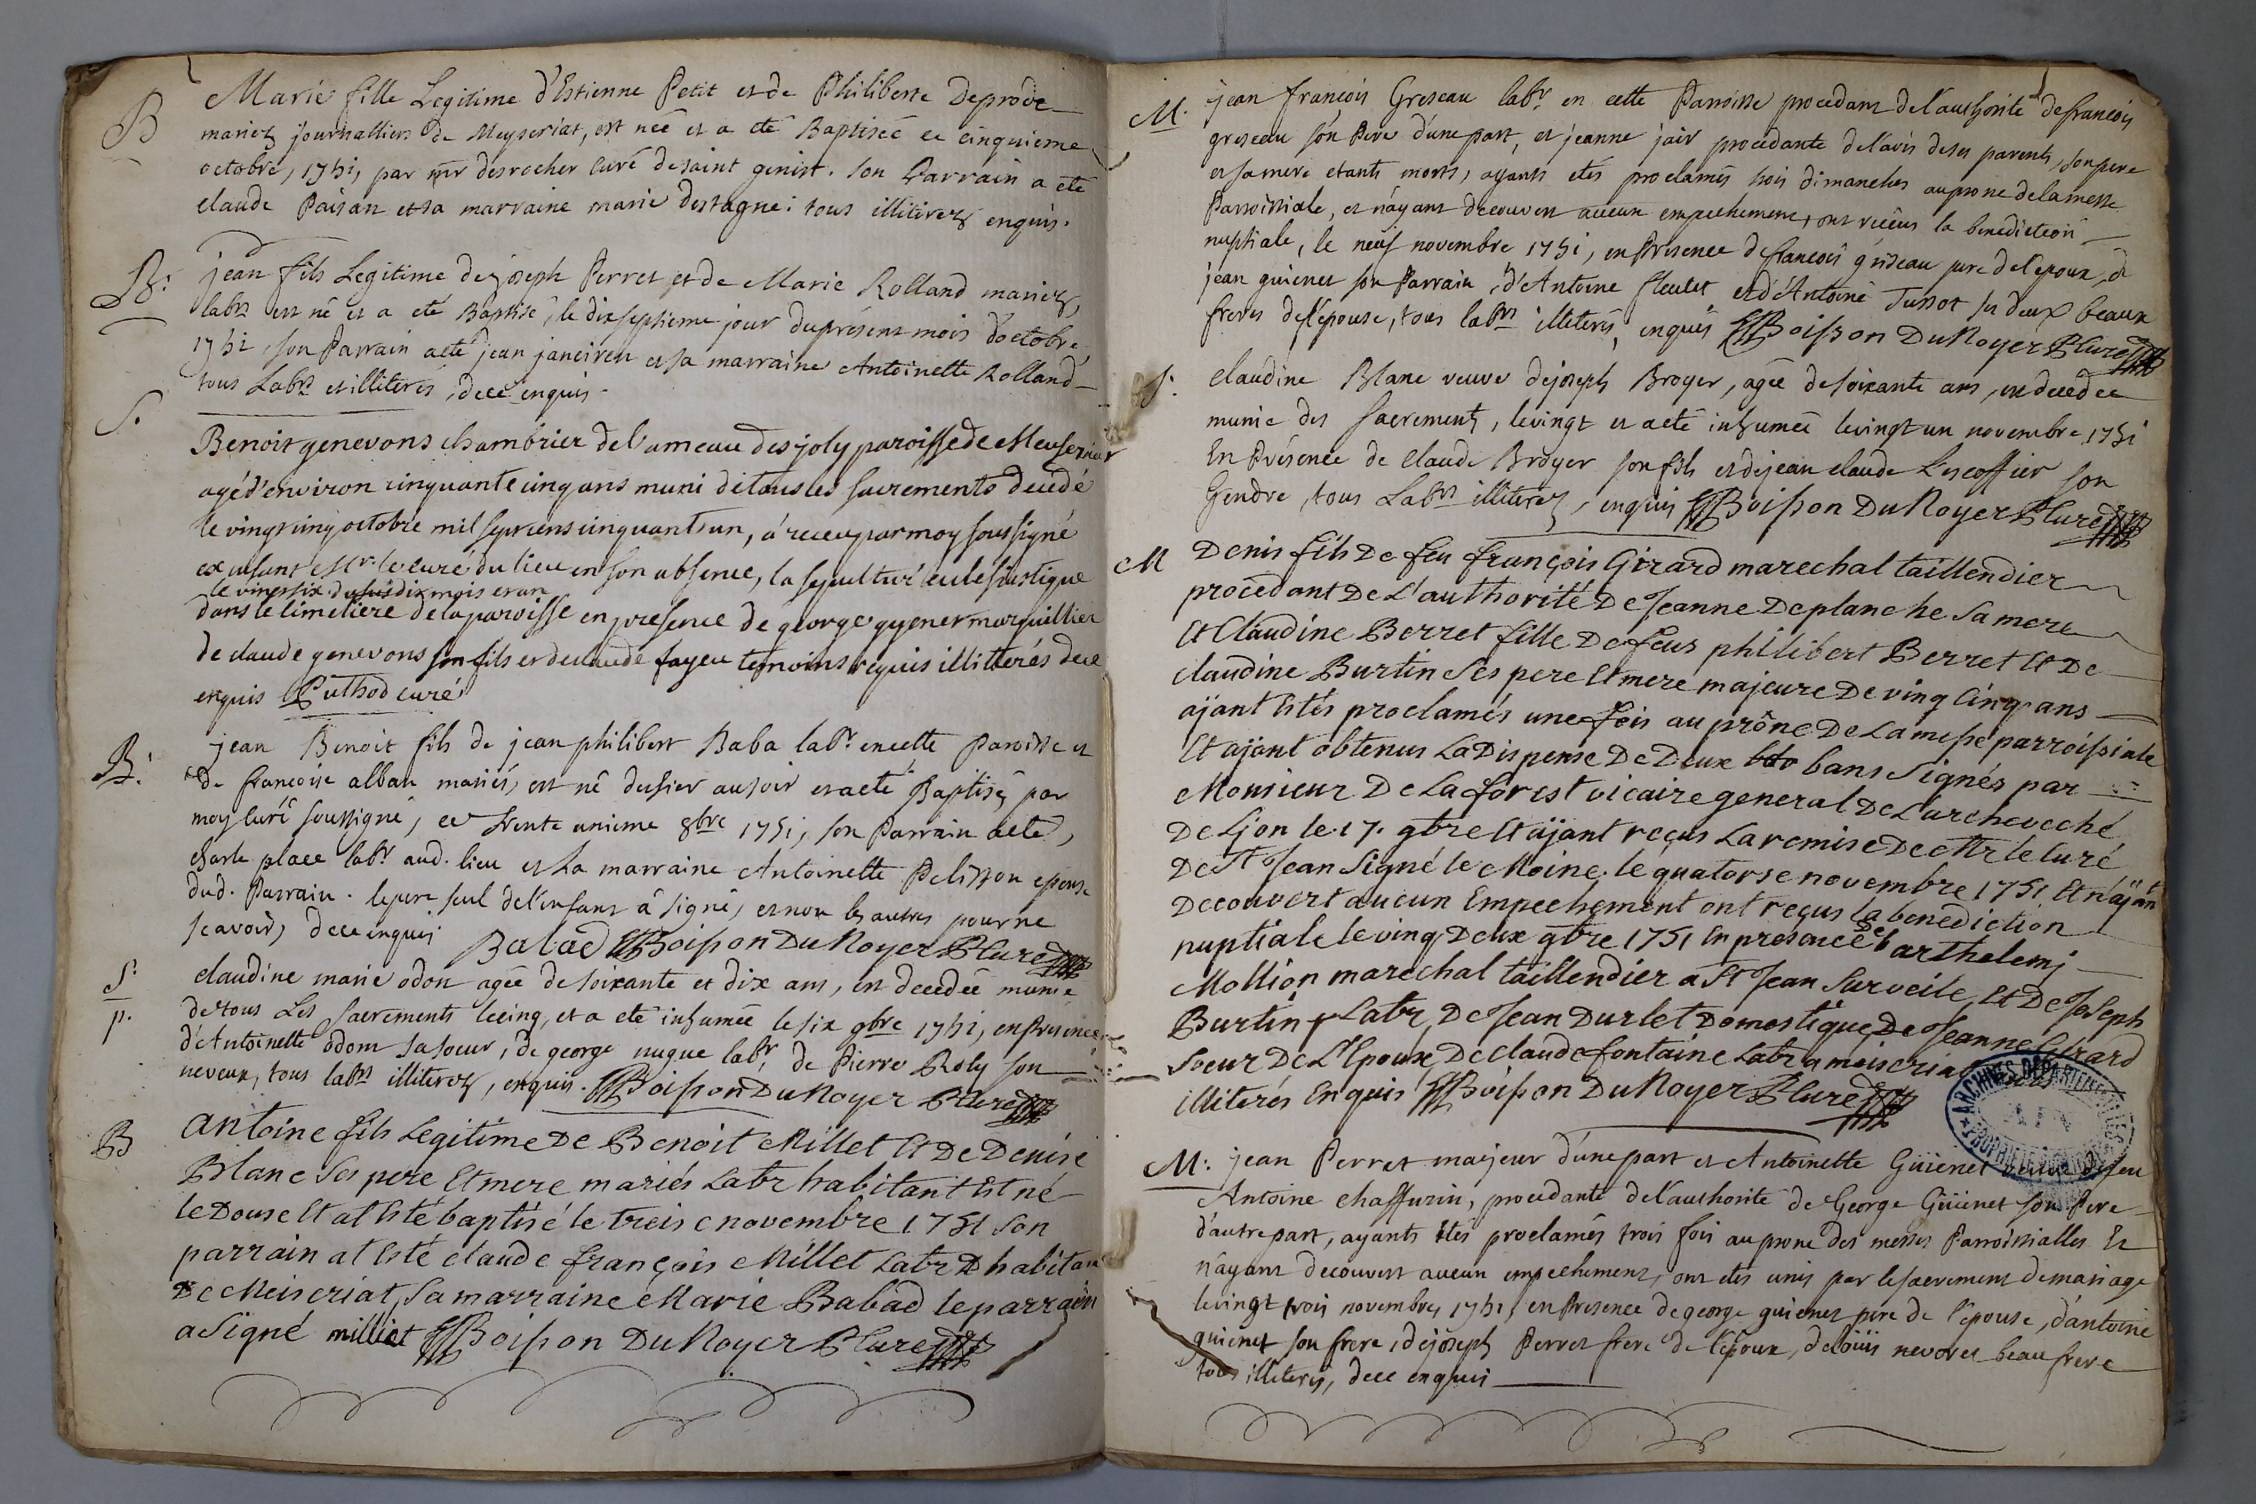 B
Marie fille Legitime d'Estienne Petit et de Philiberte Deprove
mariez journalliers de Meyseriat, est née et a eté Baptisée ce cinquieme
octobre, 1751, par mr desrocher curé de saint genist. son Parrain a eté
claude Paisan et sa marraine marie destagne: tous illiterez enquis.
B:
jean fils Legitime de joseph Perret et de Marie Rolland mariez
labrs est né et a eté Baptisé, le dixseptieme jour du present mois d'octobre
1751 son Parrain a eté jean janeiren et sa marraine Antoinette Rolland
tous Labrs et illiterés, dece enquis.
S.
Benoit genevons chambrier de l'ameau des joly paroisse de Meyseriat
agé d'environ cinquante cinq ans muni de tous les sacrements decedé
le vingt cinq octobre mil sept cens cinquant'un, a receu par moy soussigné
en absent Mr. le curé du lieu en son absence, la sepulture eclesiastique
le vingt six du susdit mois et an
dans le cimetiere de la paroisse en presence de george guyenet marguillier
de claude genevons son fils et de claude fayeu temoins requis illitterés dece
enquis Puthod curé
B:
jean Benoit fils de jean philibert Baba labr. en cette Paroisse et
de francoise alban mariés, est né du hier au soir et a eté Baptisé par
moy Curé soussigné, ce trente unieme 8bre 1751, son Parrain a eté,
charle place labr aud. lieu et la marraine Antoinette Pelisson epouse
dud. Parrain. le pere seul de l'enfant a signé, et non les autres pour ne
scavoir, dece enquis Babad Boisson DuNoyer Curé
S:
p.
claudine marie odon agée de soixante et dix ans, est decedée munie
de tous Les sacrements le cinq, et a eté inhumée le six 9bre 1751, en Presence
d'Antoinette odom sa soeur, de george nugue labr, de Pierre Roly son
neveux, tous labrs illiterez, enquis. Boisson DuNoyer Curé
B
antoine fils Legitime De Benoit Millet Et De Denise
Blanc Ses pere Et mere mariés Labr habitant Est né
le Douse Et at Esté baptisé le treise novembre 1751 Son
parrain at Esté claude françois Millet Labr habitant
De Meiseriat, Sa marraine Marie Babad le parrain
a Signé milliet Boisson DuNoyer Curé
M.
jean francois Greseau labr en cette Parroisse procedant de l'authorité de francois
greseau son Pere d'une part, et jeanne jair procedante de l'avis de ses parents, son pere
et sa mere etants morts, ayants etés proclamés trois dimanches au prone de la messe
Parroissiale, et n'ayant decouvert aucun empechement, ont receus la benediction
nuptiale, le neuf novembre 1751, en Presence de francois griseau pere de l'epoux, de
jean guienet son Parrain, d'Antoine fleulet et d'Antoine Tussot ses deux beaux
freres de l'epouse, tous labrs illiterés, enquis Boisson DuNoyer Curé
S:
claudine Blanc veuve de joseph Broyer, agée de soixante ans, est decedée
munie des sacrements, le vingt et a eté inhumée le vingt un novembre 1751
En Présence de claude Broyer son fils et de jean claude Lescoffier son
Gendre, tous Labrs illiterez, enquis Boisson DuNoyer Curé
M
Denis fils De feu françois Girard marechal taillendier
procédant De L'authorité De Jeanne Deplanche Sa mere
Et Claudine Berret fille De feus philibert Berret Et De
claudine Burtin Ses pere Et mere majeure De ving Cinq ans
ajant Estés proclamés une fois au prône De La messe parroissiale
Et ajant obtenus La Dispense De Deux bans Signés par
Monsieur De Laforest vicaire general De L'archeveché
De Ljon le 17. 9bre Et ajant reçus La remise De Mr le Curé
De St Jean Signé le Moine. le quatorse novembre 1751, Et n'ajant
Decouvert aucun Empechement ont reçus la benediction
nuptiale le ving Deux 9bre 1751 En presence De barthelemj
Mollion marechal taillendier a St Jean Surveile, Et De Joseph
Burtin Labr, De Jean Durlet Domestique, De Jeanne Girard
Soeur De L'Epoux, De claude fontaine Labr a meiseriat
illiterés Enquis Boisson DuNoyer Curé
ARCHIVES DÉPARTEMENTALES
AIN
PROPRIÉTÉ PUBLIQUE
M:
jean Perret majeur d'une part et Antoinette Guienet veuve de feu
Antoine chaffurin, procedante de l'authorité de George Guienet son Pere
d'autre part, ayants Etés proclamés trois fois au prone des messes Parroissialles Et
n'ayant decouvert aucun empechement, ont etés unis par le sacrement de mariage
le vingt trois novembre, 1751, en Presence de george guienet pere de l'epouse, d'antoine
guienet son frere, de joseph Perret frere de l'epoux, de loüis nevoret beau frere
tous illiterés, dece enquis